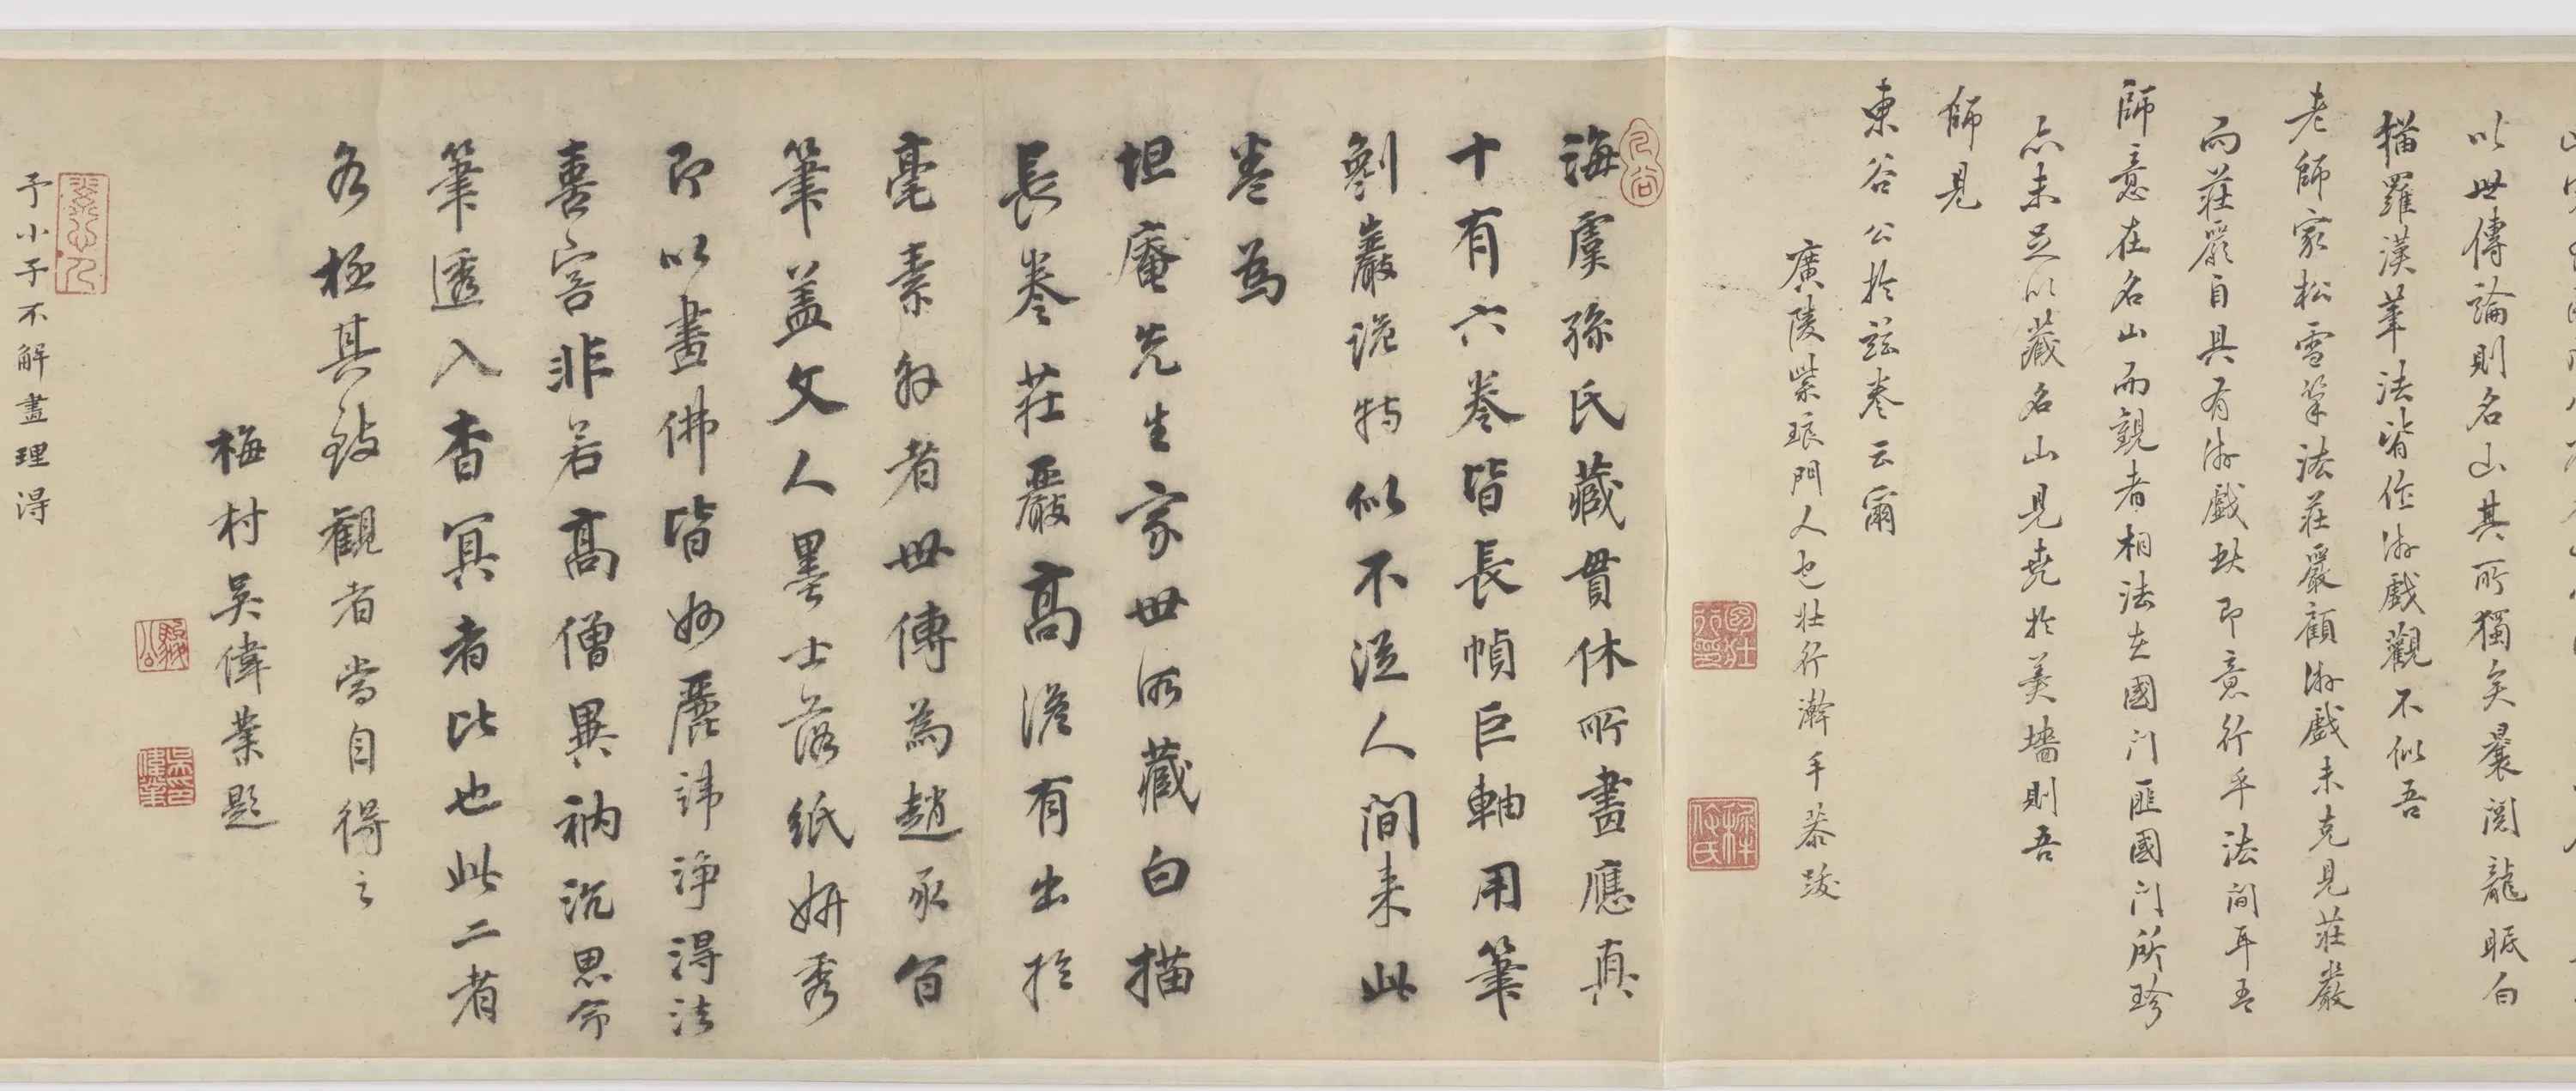 以世傳論則名山其所獨矣曩閱龍眠白
描羅漢筆法皆作游戲觀不似吾
老師家松雪筆法莊嚴顧游戲未克見莊嚴
而莊嚴自具有游戲趺即意行乎法間耳吾
師意在名山而觀者相法在國門匪國門所珍
亦未足以藏名山見堯於羹墻則吾
師見
東谷公於茲卷云爾
廣陵紫琅門人也壯行瀚手恭跋
海虞孫氏藏貫休所畫應真
十有六卷皆長幀巨軸用筆
劖巖詭特似不從人間来此
卷為
坦庵先生家世所藏白描
長卷莊嚴高澹有出於
毫素外者世傳為趙承旨
筆盖文人墨士落紙妍秀
即以畫佛皆妙麗諱淨得法
喜窨非若高僧異衲沉思命
筆透入杳冥者比也此二者
各極其致觀者當自得之
梅村吳偉業題
駿公
吳偉業印
予小子不解畫理得